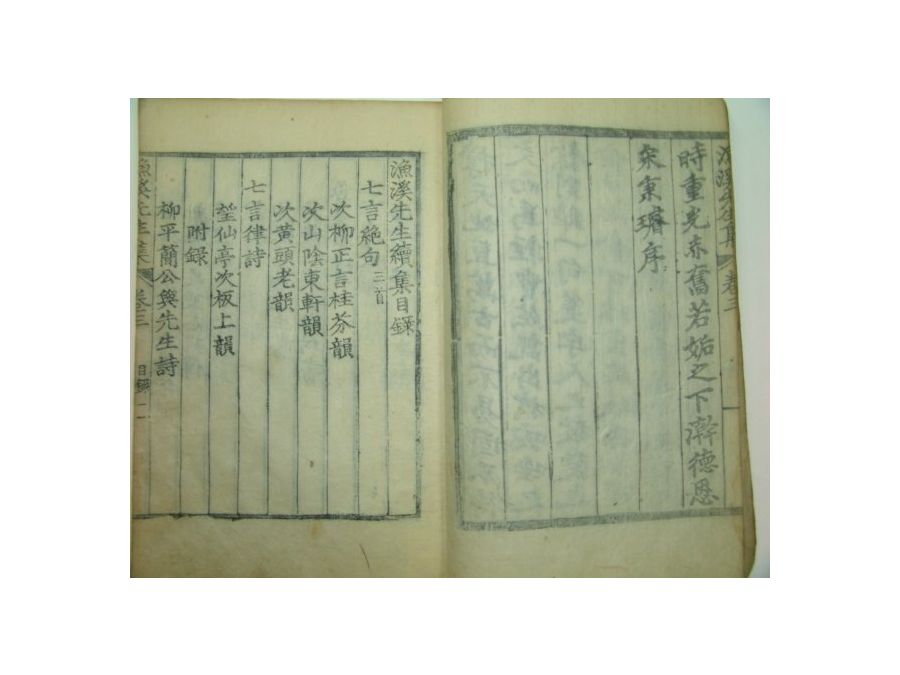 漁溪先生集 卷三
時重光赤奮若姤之下澣德恩
宋秉璿序
漁溪先生續集目録
七言絶句 三首
次柳正言桂芬韻
次山陰東軒韻
次黄頭老韻
七言律詩
望仙亭次板上韻
附録
柳平蘭公與先生詩
漁溪先生集 卷三 目録 二